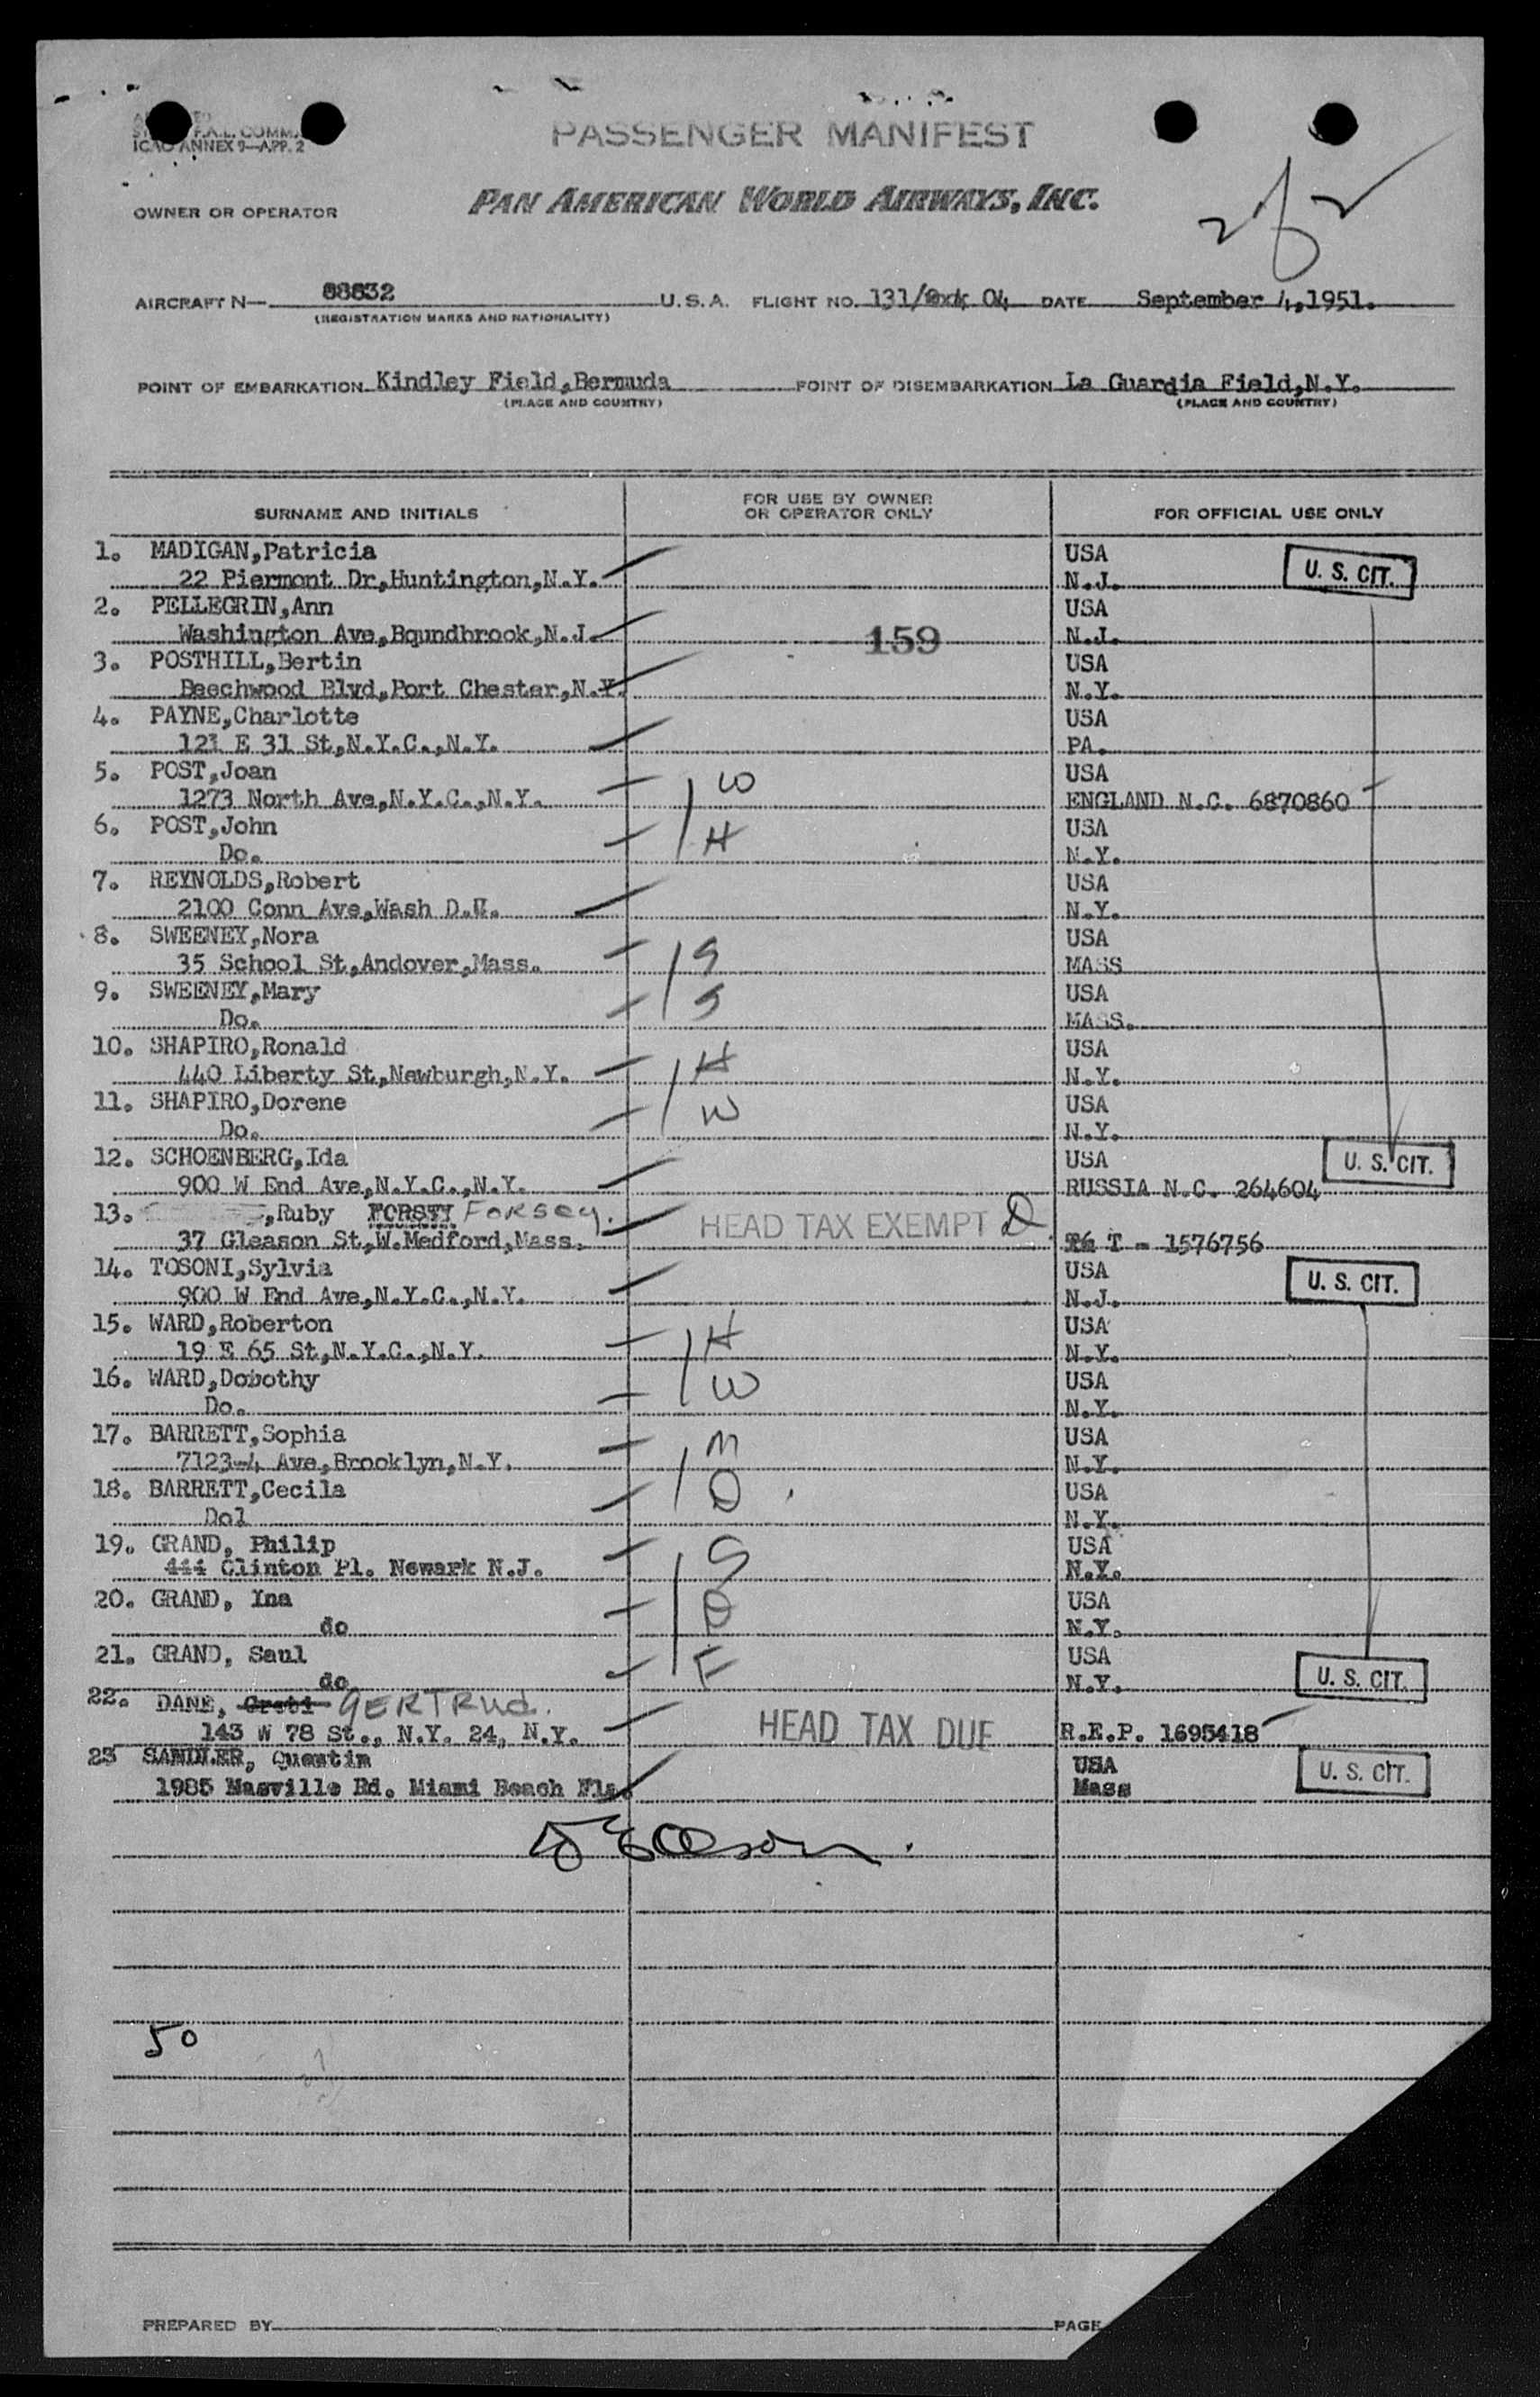 F.A.L. COMM.
ICAO ANNEX 9—APP. 2
PASSENGER MANIFEST
OWNER OR OPERATOR
PAN AMERICAN WORLD AIRWAYS, INC.
2 of 2
AIRCRAFT N— 88832 U.S.A. FLIGHT NO. 131/ 04 DATE September 4,1951.
(REGISTRATION MARKS AND NATIONALITY)
POINT OF EMBARKATION Kindley Field,Bermuda POINT OF DISEMBARKATION La Guardia Field,N.Y.
(PLACE AND COUNTRY) (PLACE AND COUNTRY)
SURNAME AND INITIALS FOR USE BY OWNER OR OPERATOR ONLY FOR OFFICIAL USE ONLY
1. MADIGAN,Patricia USA
22 Piermont Dr,Huntington,N.Y. N.J. U. S. CIT.
2. PELLEGRIN,Ann USA
Washington Ave,Boundbrook,N.J. 159 N.J.
3. POSTHILL,Bertin USA
Beechwood Blvd,Port Chester,N.Y. N.Y.
4. PAYNE,Charlotte USA
121 E 31 St,N.Y.C.,N.Y. PA.
5. POST,Joan W USA
1273 North Ave,N.Y.C.,N.Y. ENGLAND N.C. 6870860
6. POST,John H USA
Do. N.Y.
7. REYNOLDS,Robert USA
2100 Conn Ave,Wash D.C. N.Y.
8. SWEENEY,Nora S USA
35 School St,Andover,Mass. MASS
9. SWEENEY,Mary S USA
Do. MASS.
10. SHAPIRO,Ronald H USA
440 Liberty St,Newburgh,N.Y. N.Y.
11. SHAPIRO,Dorene W USA
Do. N.Y.
12. SCHOENBERG,Ida USA U. S. CIT.
900 W End Ave,N.Y.C.,N.Y. RUSSIA N.C. 264604
13. ,Ruby FORSTY Forsey. HEAD TAX EXEMPT D
37 Gleason St,W.Medford,Mass. T - 1576756
14. TOSONI,Sylvia USA U. S. CIT.
900 W End Ave,N.Y.C.,N.Y. N.J.
15. WARD,Roberton H USA
19 E 65 St,N.Y.C.,N.Y. N.Y.
16. WARD,Dobothy W USA
Do. N.Y.
17. BARRETT,Sophia M USA
7123-4 Ave,Brooklyn,N.Y. N.Y.
18. BARRETT,Cecila D USA
Dol N.Y.
19. GRAND, Philip S USA
444 Clinton Pl. Newark N.J. N.Y.
20. GRAND, Ina D USA
do N.Y.
21. GRAND, Saul F USA
do N.Y. U. S. CIT.
22. DANE, Greti GERTRud.
143 W 78 St., N.Y. 24, N.Y. HEAD TAX DUE R.E.P. 1695418
23 SANDLER, Quentin USA U. S. CIT.
1985 Nasville Rd. Miami Beach Fla. Mass
50
PREPARED BY PAGE